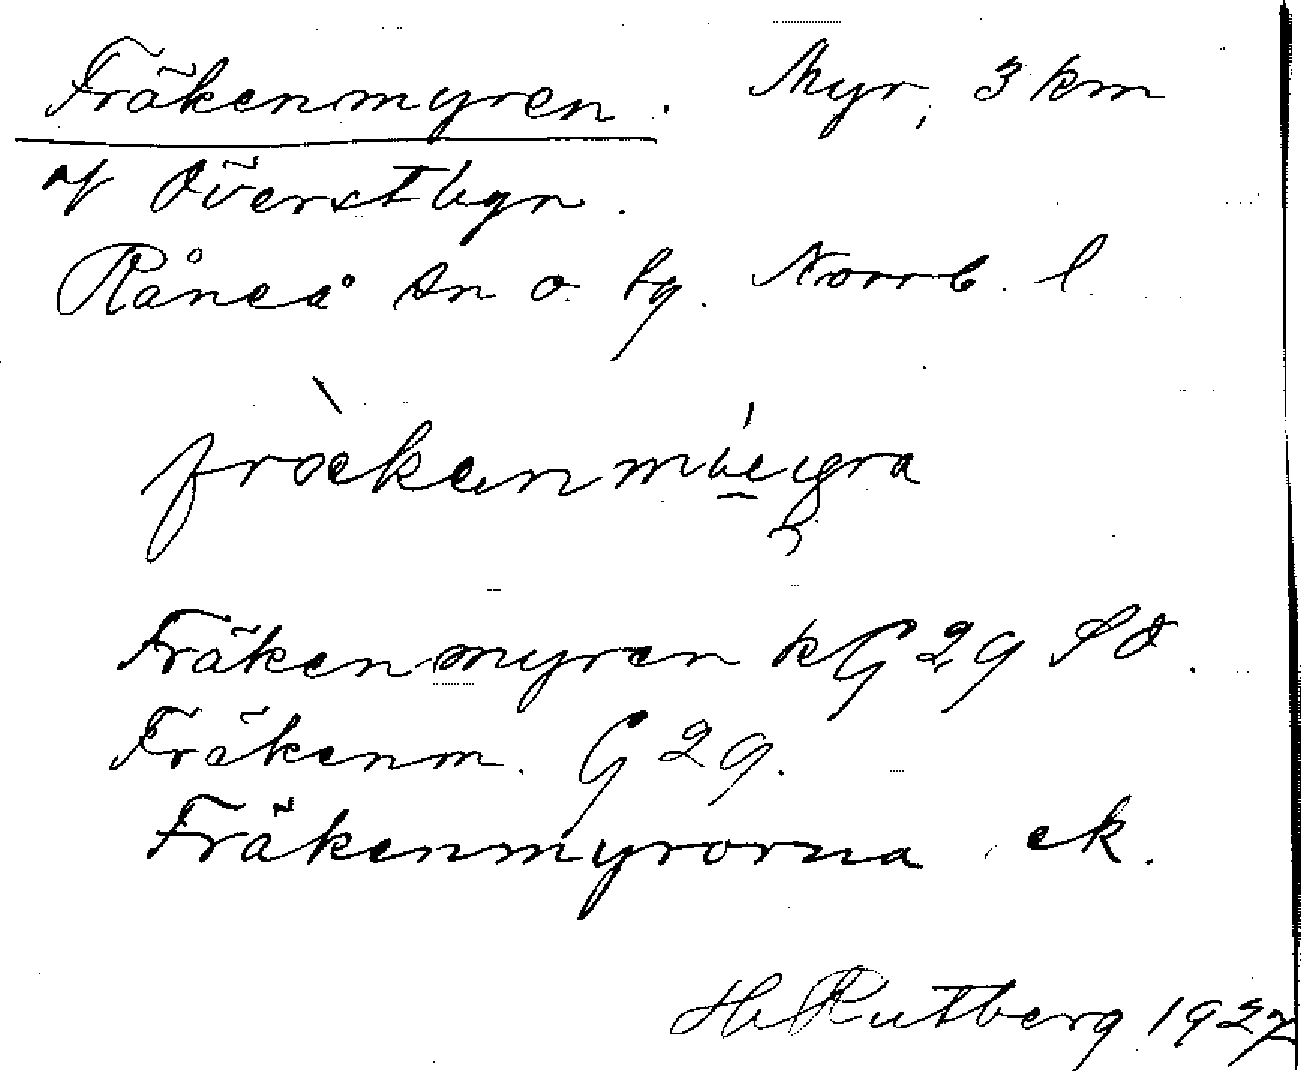 Fräkenmyren. Myr, 3 km
Överstbyn.
Råneå sn o. tg. Norrb. l.
Fräkenmyren kG 29 SO.
Fräkenm. G 29.
Fräkenmyrorna ek.
H. Rutberg 1927